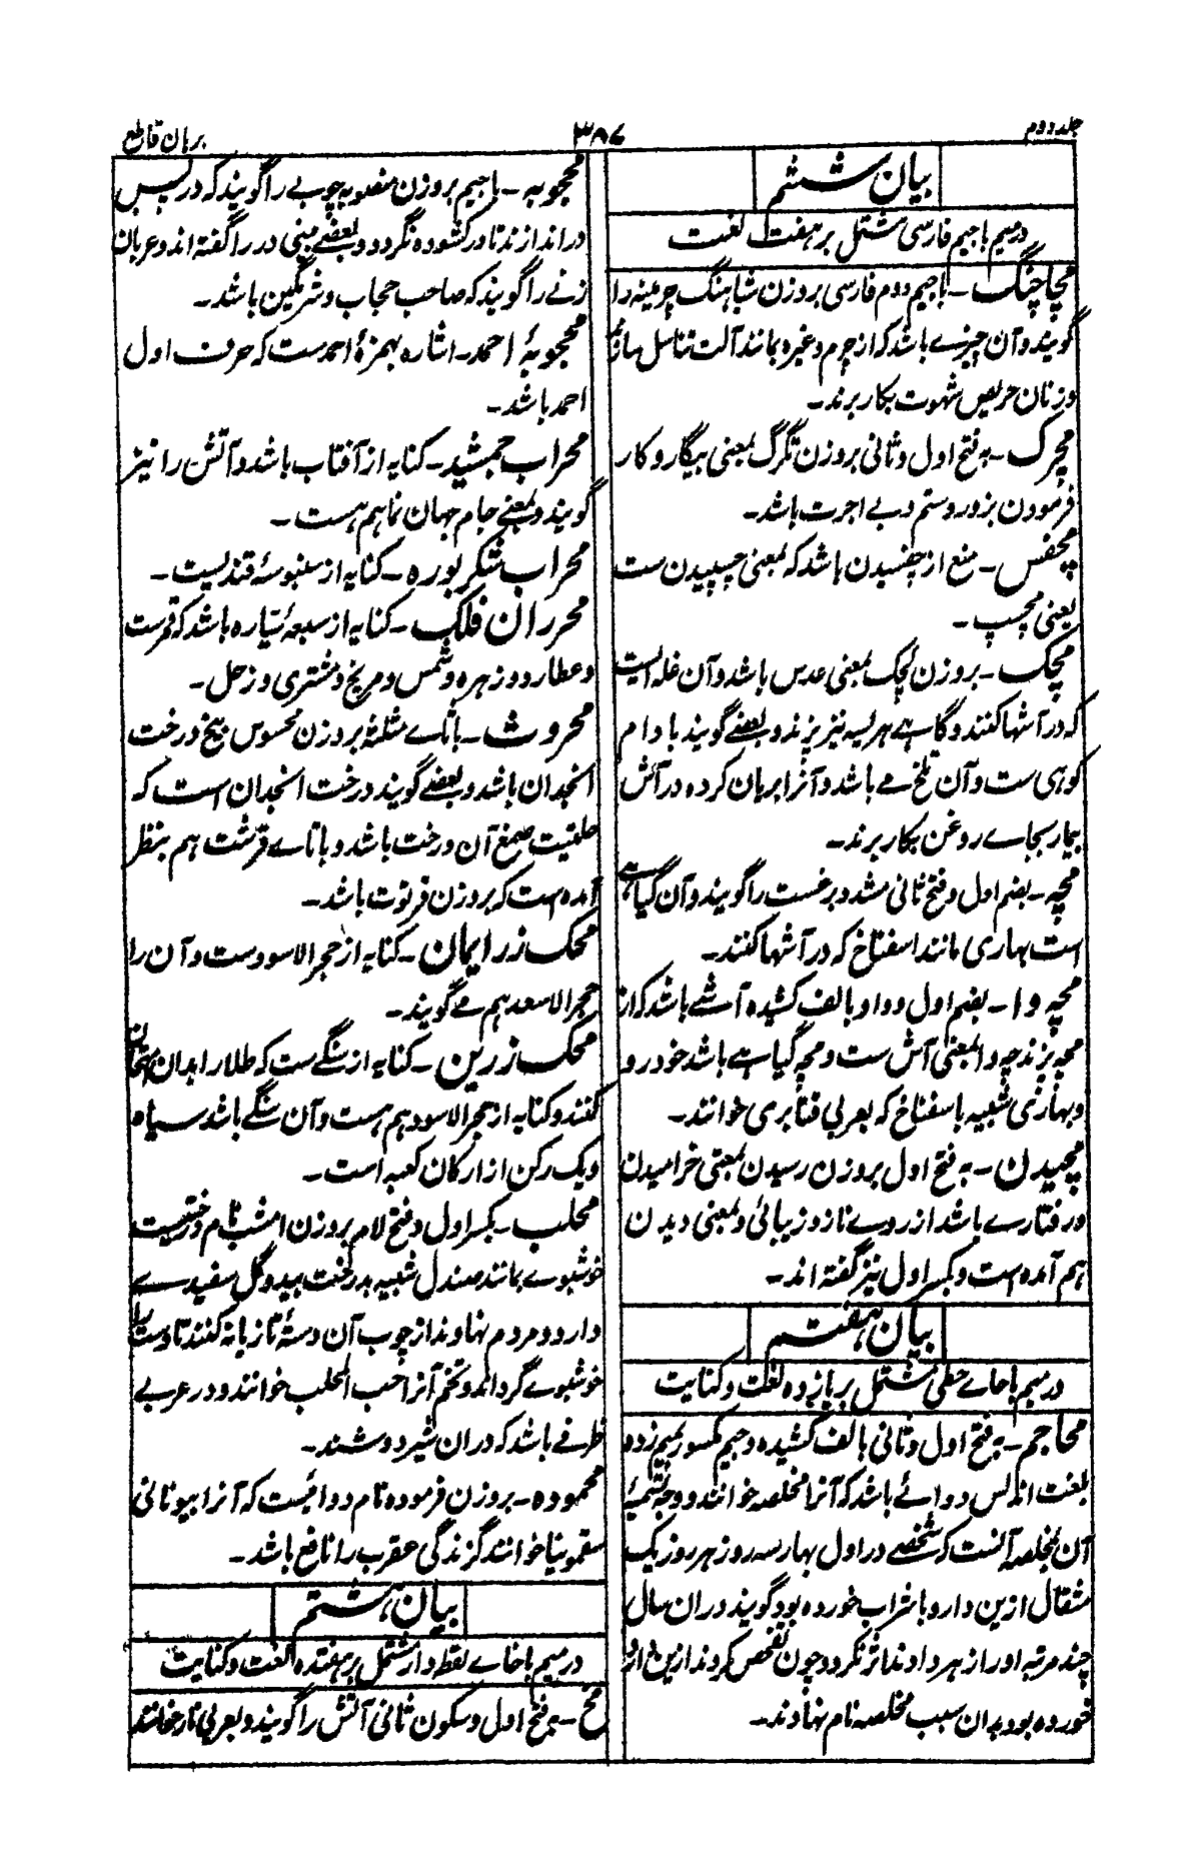 جلد دوم
۳۸۷
برہان قاطع
بیان ششم
در میم با جیم فارسی مشتمل بر ہفت لغت
مچاچنگ ـ با جیم دوم فارسی بروزن شباہنگ چرمینہ را
گویند و آن چیزے باشد کہ از چرم و غیرہ بمانند آلت تناسل سازند
و زنان حریص شہوت بکار برند ـ
مچرک ـ بہ فتح اول و ثانی بروزن تگرگ بمعنی بیگار و کار
فرمودن بزور و ستم و بے اجرت باشد ـ
مچفس ـ منع از چفسیدن باشد کہ بمعنی چسپیدن ست
یعنی مچسپ ـ
مچک ـ بروزن کچک بمعنی عدس باشد و آن غلہ ایست
کہ در آشہا کنند و گاہے ہریسہ نیز پزند و بعضے گویند بادام
کوہی ست و آن تلخ مے باشد و آنرا بریان کردہ در آش
بیمار بجاے روغن بکار برند ـ
مچہ ـ بضم اول و فتح ثانی مشدد برغست را گویند و آن گیاہے
است بہاری مانند اسفناخ کہ در آشہا کنند ـ
مچہ وا ـ بضم اول و واو بالف کشیدہ آشے باشد کہ از
مچہ پزند چہ وا بمعنی آش ست و مچہ گیاہے باشد خودرو
و بہاری شبیہ باسفناخ کہ بعربی قنابری خوانند ـ
مچیدن ـ بہ فتح اول بروزن رسیدن بمعنی خرامیدن
و رفتارے باشد از روے ناز و زیبائی و بمعنی دیدن
ہم آمدہ است و بکسر اول نیز گفتہ اند ـ
بیان ہفتم
در میم با حاے حطی مشتمل بر یازدہ لغت و کنایت
محاجم ـ بہ فتح اول و ثانی بالف کشیدہ و جیم مکسور بمیم زدہ
بلغت اندلس دوائے باشد کہ آنرا مخلصہ خوانند و وجہ تسمیۂ
آن بمخلصہ آنست کہ شخصے در اول بہار سہ روز ہر روز یک
مثقال ازین دارو با شراب خوردہ بود گویند دران سال
چند مرتبہ او را زہر دادند اثر نکرد و چون تفحص کردند ازین دارو
خوردہ بود بدان سبب مخلصہ نام نہادند ـ
محجوبہ ـ با جیم بروزن منصوبہ چوبے را گویند کہ در پس
در اندازند تا در کشودہ نگردد و بعضے مینی در را گفتہ اند و عربان
زنے را گویند کہ صاحب حجاب و شرمگین باشد ـ
محجوبۂ احمد ـ اشارہ بہمزۂ احمدست کہ حرف اول
احمد باشد ـ
محراب جمشید ـ کنایہ از آفتاب باشد و آتش را نیز
گویند و بمعنے جام جہان نما ہم ہست ـ
محراب شکر بورہ ـ کنایہ از سنبوسۂ قندیست ـ
محرران فلک ـ کنایہ از سبعۂ سیارہ باشد کہ قمرست
و عطارد و زہرہ و شمس و مریخ و مشتری و زحل ـ
محروث ـ باثاے مثلثہ بروزن محسوس بیخ درخت
انجدان باشد و بعضے گویند درخت انجدان است کہ
حلتیت صمغ آن درخت باشد و باتاے قرشت ہم بنظر
آمدہ است کہ بروزن فرتوت باشد ـ
محک زر ایمان ـ کنایہ از حجر الاسودست و آن را
حجر الاسعد ہم مے گویند ـ
محک زرین ـ کنایہ از سنگے ست کہ طلا را بدان امتحان
کنند و کنایہ از حجر الاسود ہم ہست و آن سنگے باشد سیاہ
و یک رکن از ارکان کعبہ است ـ
محلب ـ بکسر اول و فتح لام بروزن امشب نام درختیست
خوشبوے مانند صندل شبیہ بدرخت بید و گل سفیدے
دارد و مردم نہاوند از چوب آن دستۂ تازیانہ کنند تا دست را
خوشبوے گرداند و تخم آنرا حب المحلب خوانند و در عربے
ظرفے باشد کہ دران شیر دوشند ـ
محمودہ ـ بروزن فرمودہ نام دوائیست کہ آنرا بیونانی
سقمونیا خوانند گزندگی عقرب را نافع باشد ـ
بیان ہشتم
در میم با خاے نقطہ دار مشتمل بر ہفتدہ لغت و کنایت
مخ ـ بہ فتح اول و سکون ثانی آتش را گویند و بعربی نار خوانند